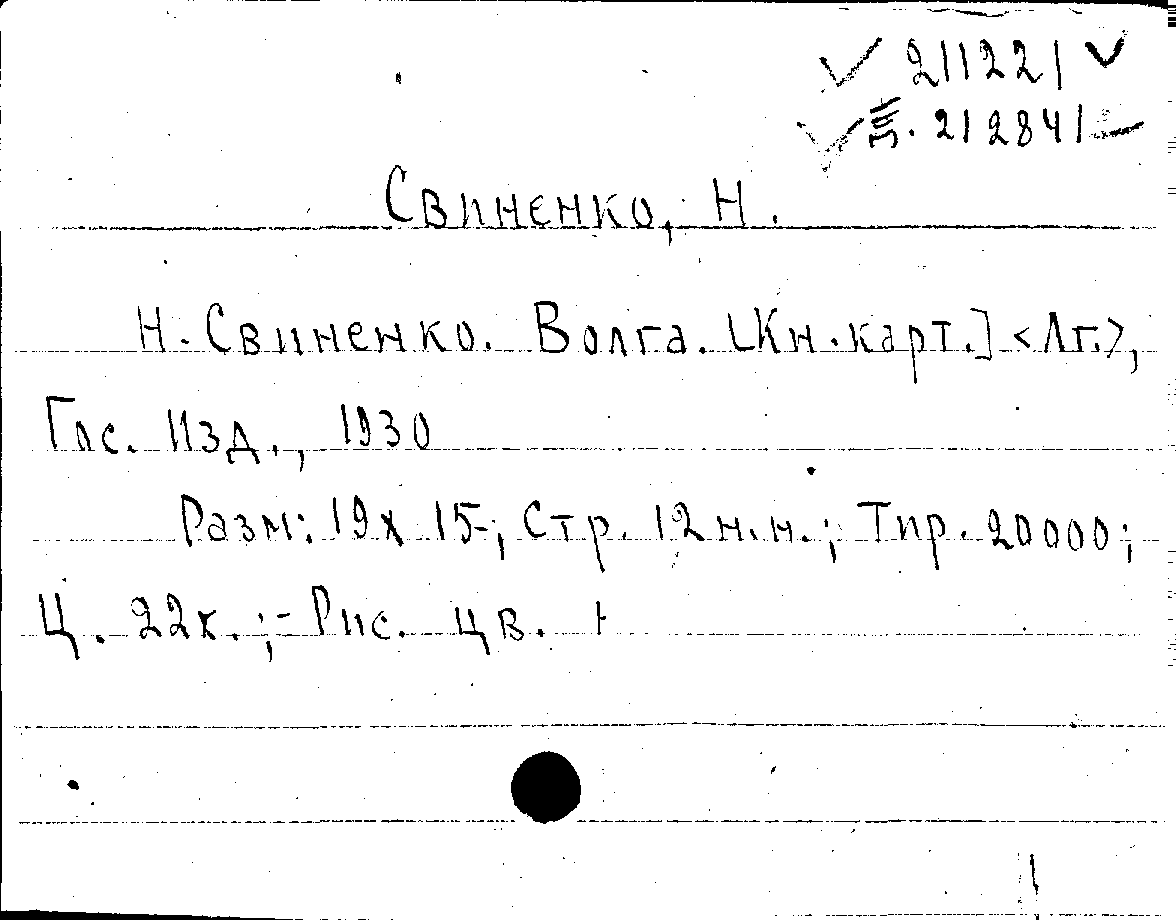 ✓ 211221 ✓
✓ 212841 –
Свиненко, Н.
Н. Свиненко. Волга. [Кн.карт.] <Лг.>,
Гос. Изд., 1930
Разм: 19х 15-; Стр. 12 н.н.; Тир. 20000;
Ц. 22к.;- Рис. цв. +